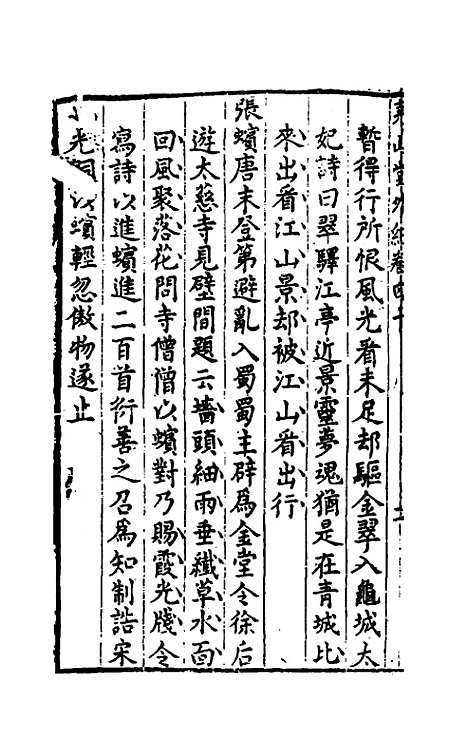 堯山堂外紀卷四十
暫得行所恨風光看未足却驅金翠入龜城太
妃詩曰翠驛江亭近景靈夢魂猶是在青城比
來出看江山景却被江山看出行
張蠙唐末登第避亂入蜀蜀主辟爲金堂令徐后
遊太慈寺見壁間題云墻頭細雨垂纖草水面
回風聚落花問寺僧僧以蠙對乃賜霞光牋令
寫詩以進蠙進二百首衍善之召爲知制誥宋
光嗣以蠙輕忽傲物遂止